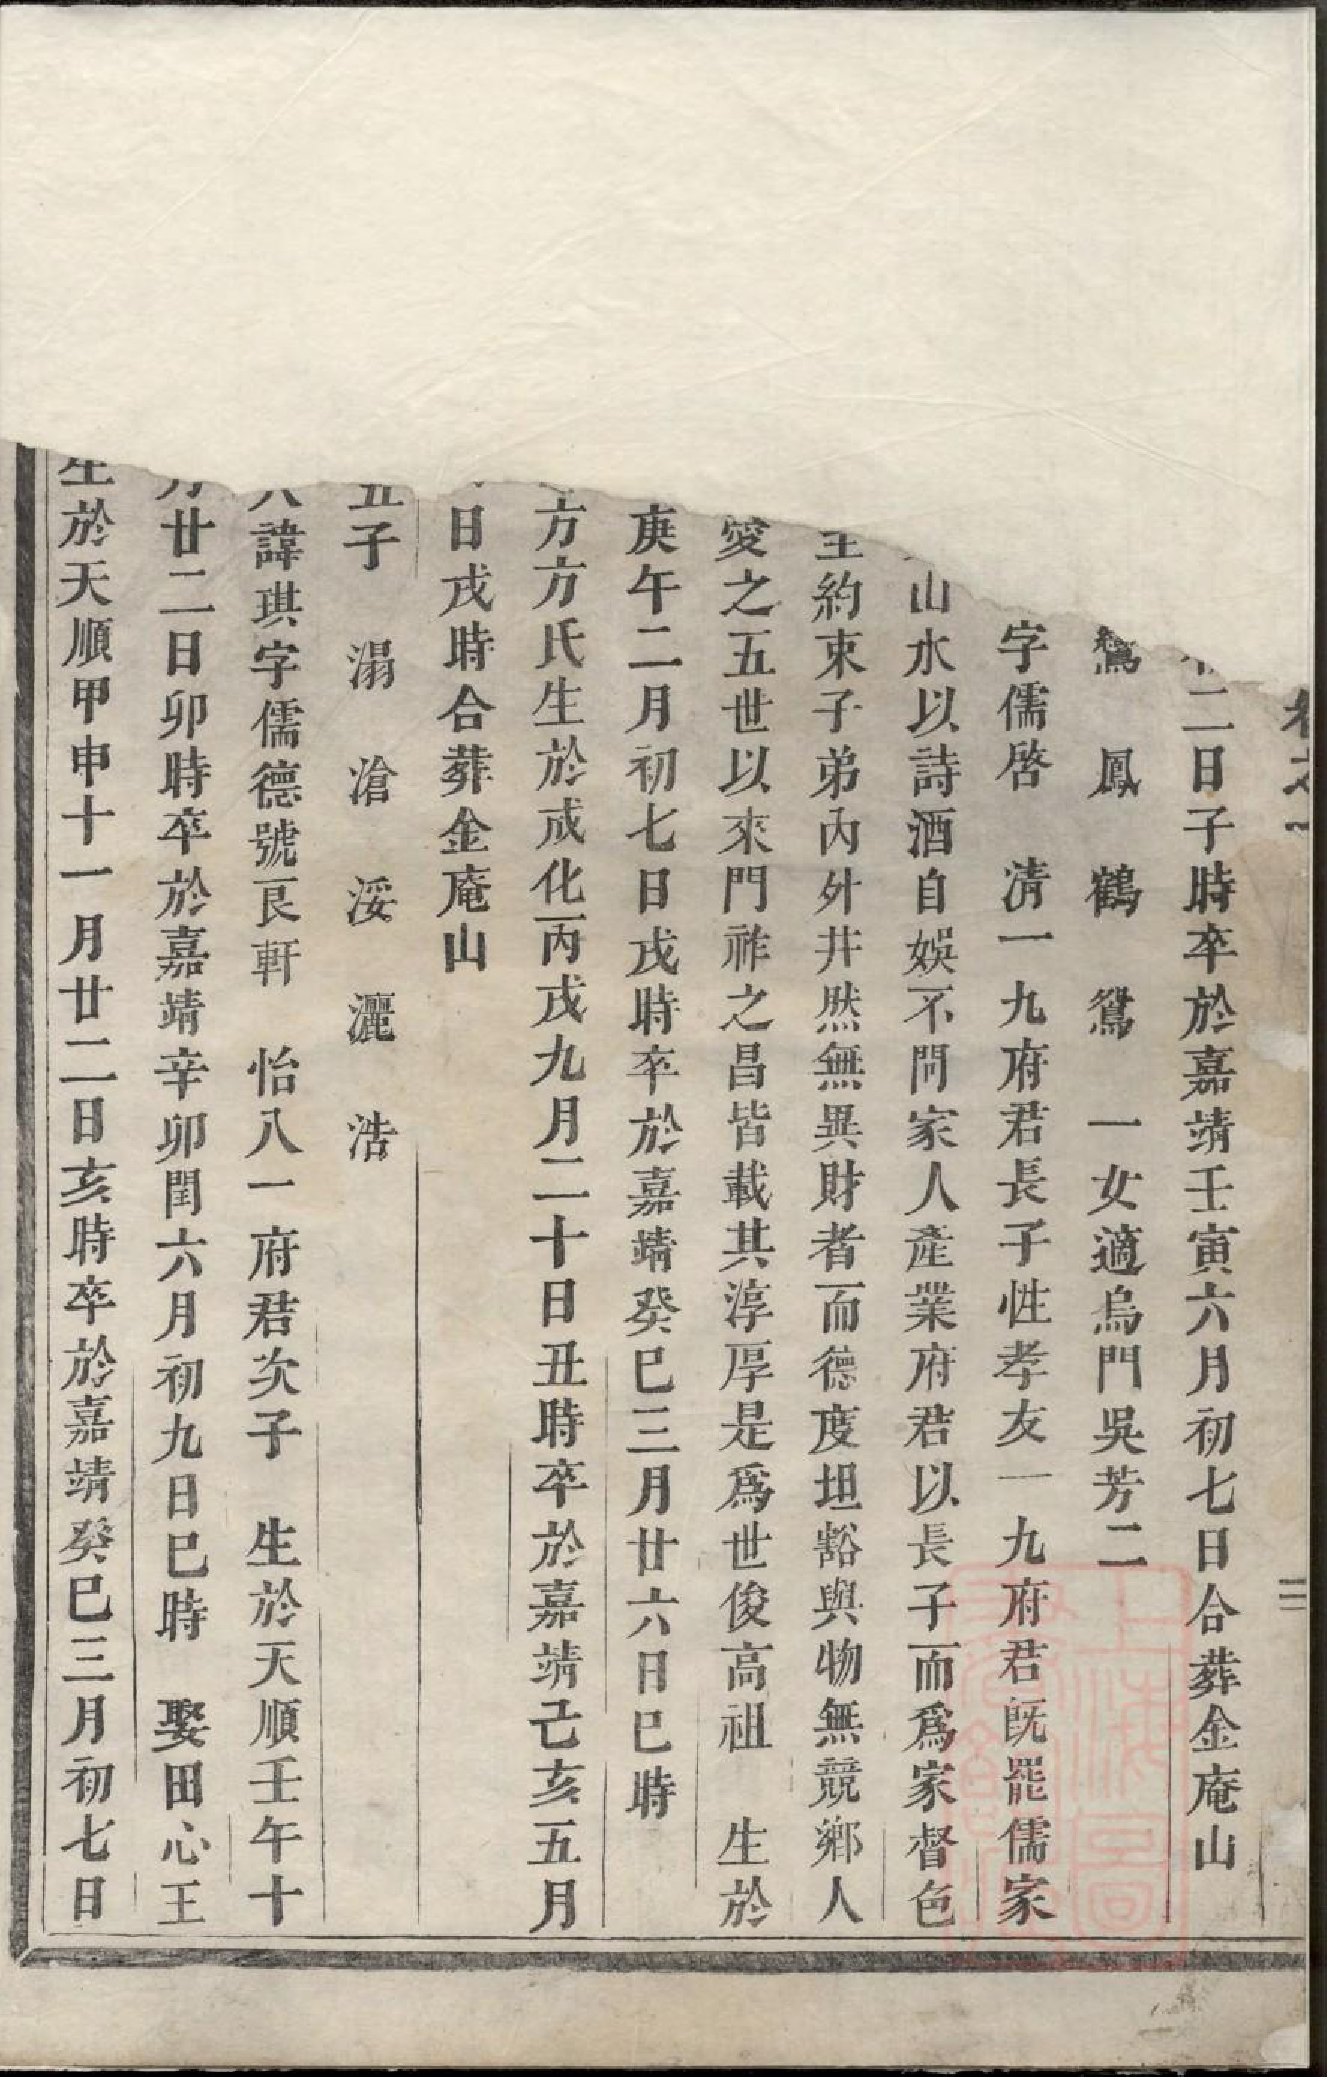 卷之一
二日子時卒於嘉靖壬寅六月初七日合葬金庵山
鸞 鳳 鶴 鴛 一女適烏門吳芳二
字儒啓 清一九府君長子性孝友一九府君既罷儒家
山水以詩酒自娛不問家人產業府君以長子而爲家督色
至約束子弟內外井然無異財者而德度坦豁與物無競鄉人
愛之五世以來門祚之昌皆載其淳厚是爲世俊高祖 生於
庚午二月初七日戌時卒於嘉靖癸巳三月廿六日巳時
方方氏生於成化丙戌九月二十日丑時卒於嘉靖己亥五月
日戌時合葬金庵山
五子 溺 滄 浽 灑 浩
八諱琪字儒德號艮軒 怡八一府君次子 生於天順壬午十
月廿二日卯時卒於嘉靖辛卯閏六月初九日巳時 娶田心王
生於天順甲申十一月廿二日亥時卒於嘉靖癸巳三月初七日
三
上海圖書館藏